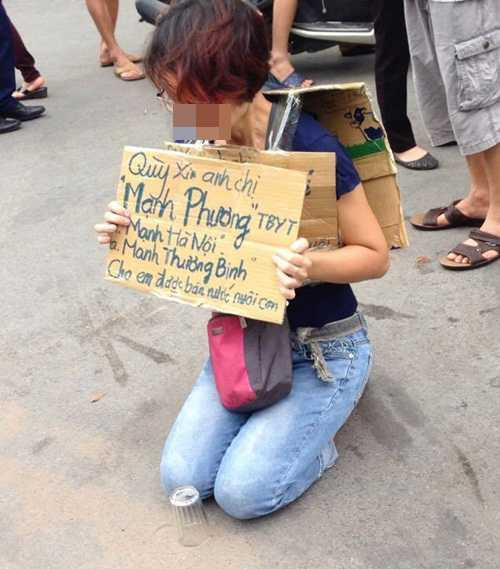 Qùy Xin anh chị
"Mạnh Phương" TBYT
a. "Mạnh Hà Nôi"
a. Mạnh Thường Bình"
Cho em được bán nước nuôi con